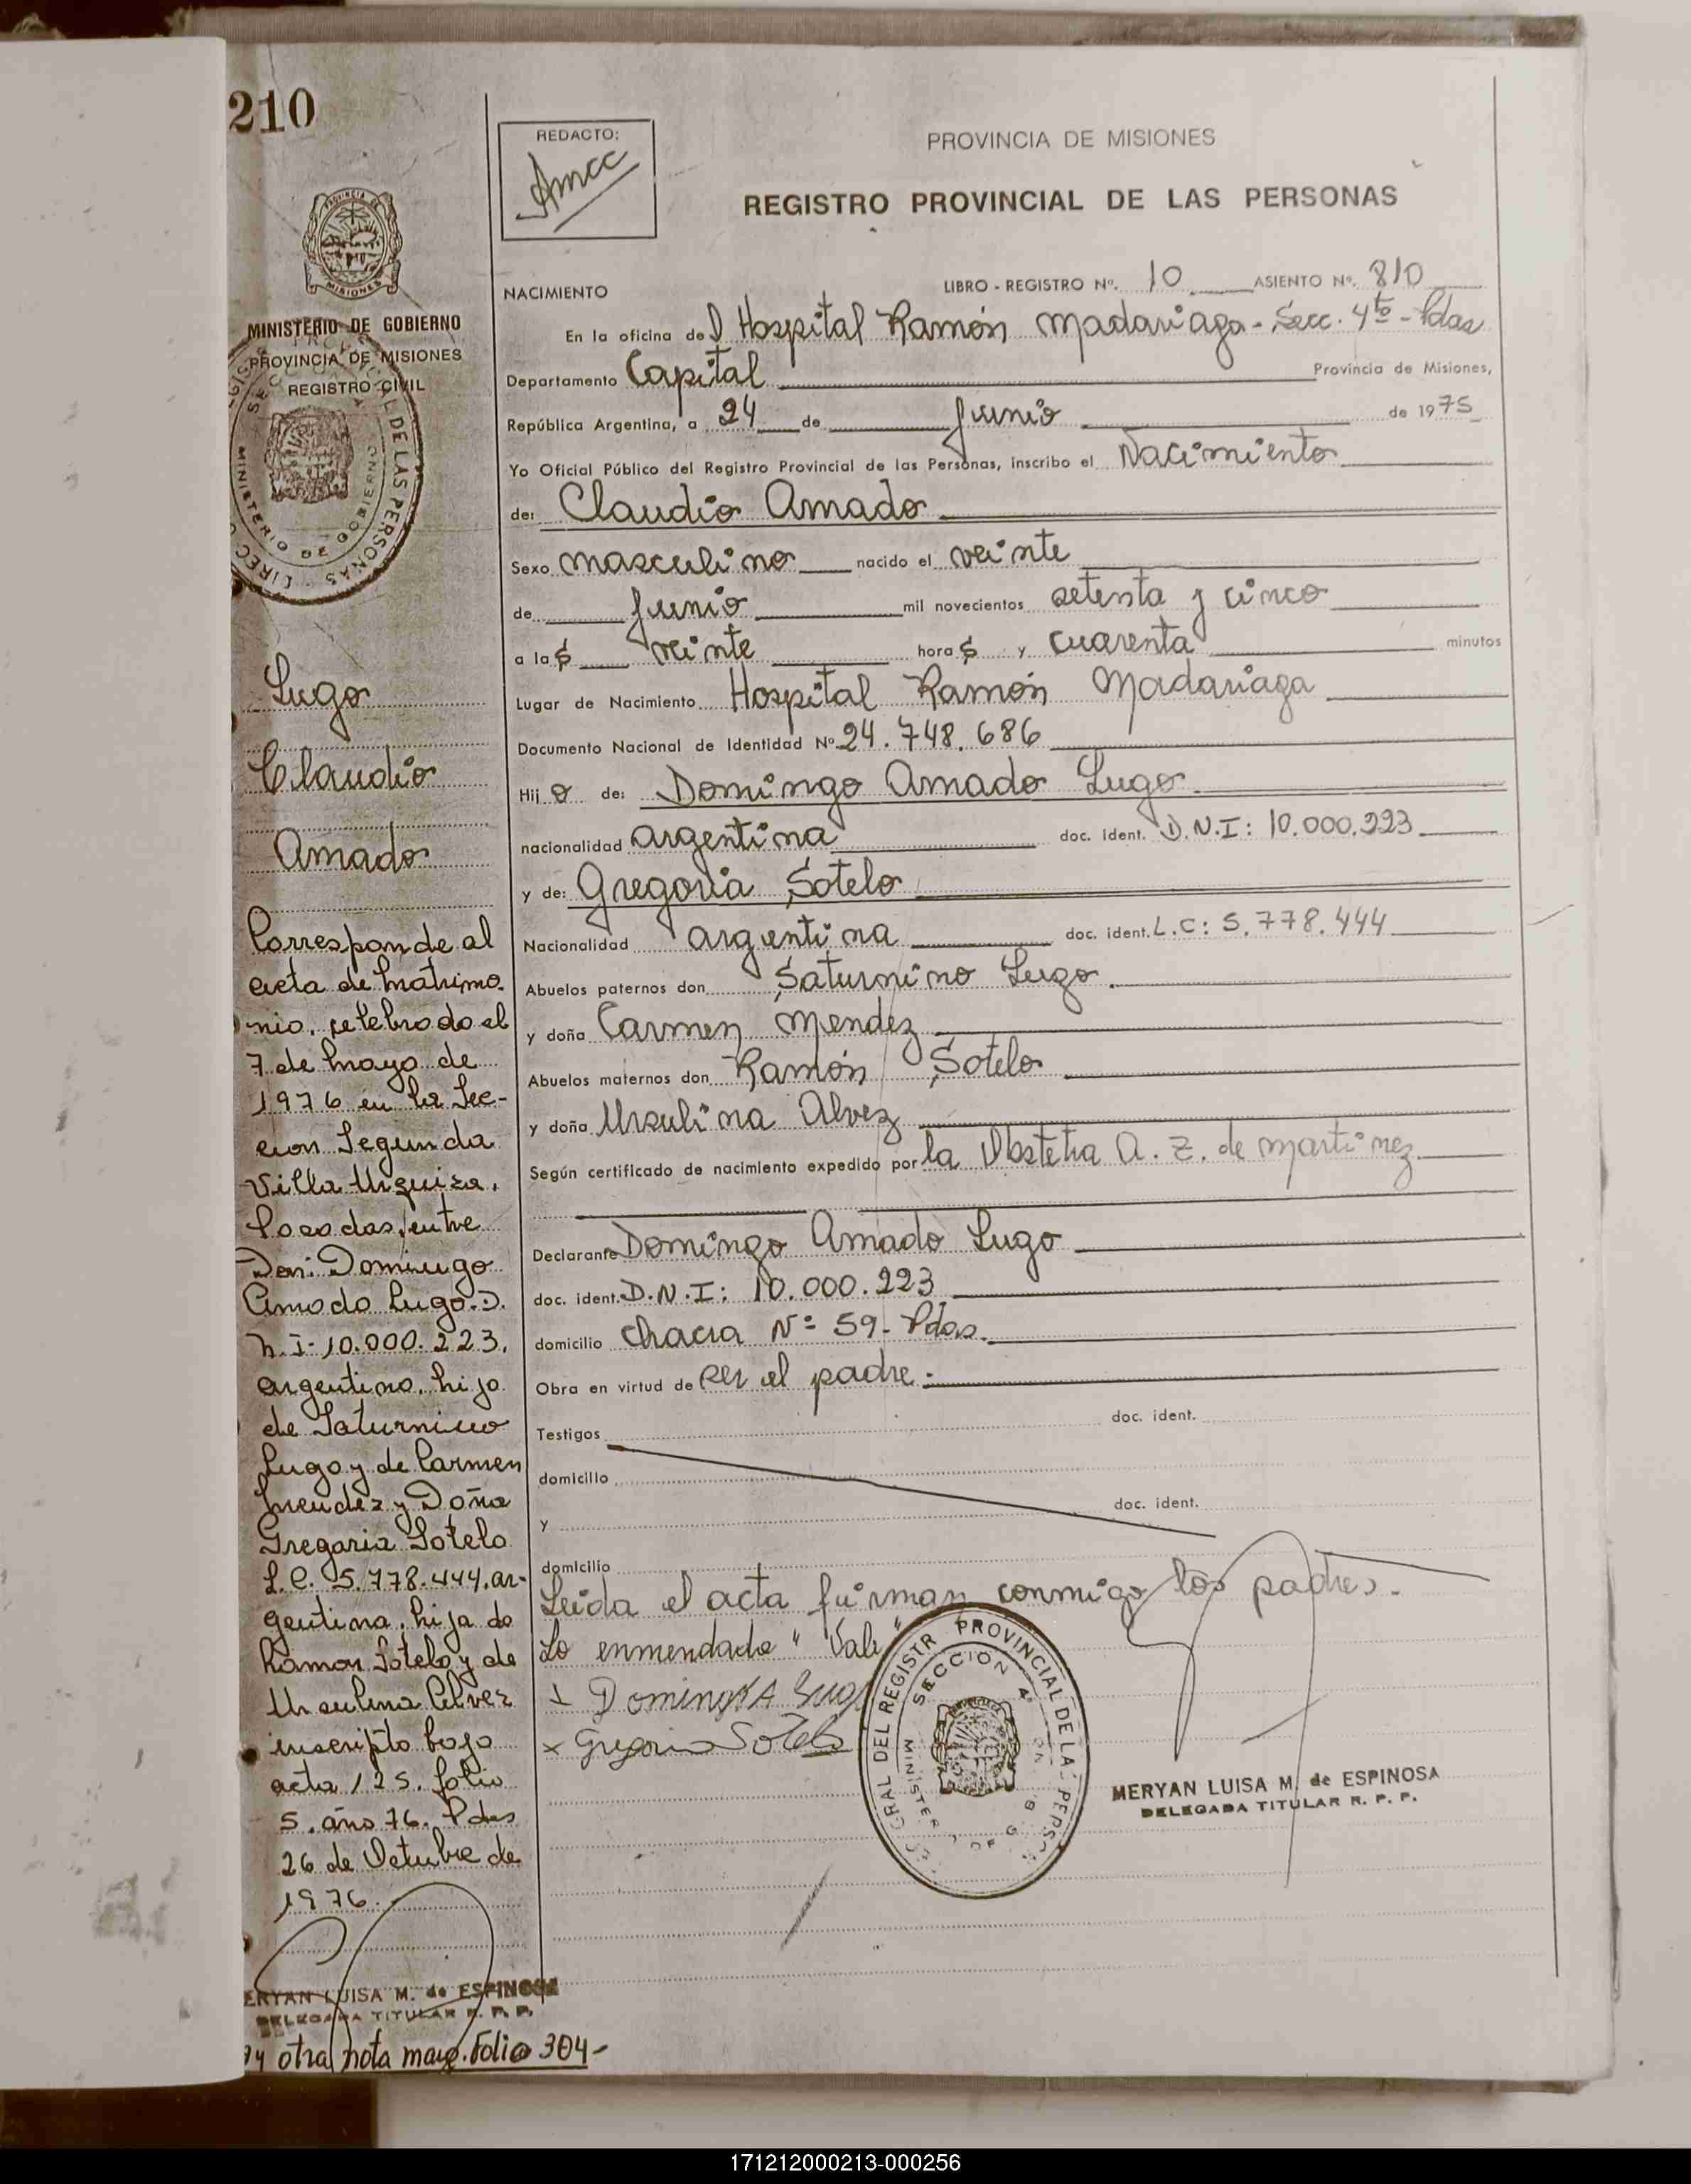 210
REDACTO:
Amcc
PROVINCIA DE MISIONES
REGISTRO PROVINCIAL DE LAS PERSONAS
MISIONES
MINISTERIO DE GOBIERNO
PROVINCIA DE MISIONES
REGISTRO CIVIL
NACIMIENTO
LIBRO - REGISTRO Nº. 10 ASIENTO Nº. 810
En la oficina del Hospital Ramón Madariaga - Secc. 4to - Pdas
Departamento Capital Provincia de Misiones,
República Argentina, a 24 de Junio de 1975
Yo Oficial Público del Registro Provincial de las Personas, inscribo el Nacimiento
de: Claudio Amado
Sexo masculino nacido el veinte
de Junio mil novecientos setenta y cinco
a las veinte horas y cuarenta minutos
Lugar de Nacimiento Hospital Ramón Madariaga
Documento Nacional de Identidad Nº 24.748.686
Hijo de: Domingo Amado Lugo
nacionalidad argentina doc. ident. D.N.I: 10.000.223
y de: Gregoria Sotelo
Nacionalidad argentina doc. ident. L.C: 5.778.444
Abuelos paternos don Saturnino Lugo
y doña Carmen Mendez
Abuelos maternos don Ramón Sotelo
y doña Ursulina Alvez
Según certificado de nacimiento expedido por la Obstetra A. Z. de Martinez
Declarante Domingo Amado Lugo
doc. ident. D.N.I: 10.000.223
domicilio Chacra Nº 59 - Pdas.
Obra en virtud de ser el padre.-
Testigos doc. ident.
domicilio
y doc. ident.
domicilio
Leida el acta firman conmigo los padres.-
Lo enmendado "Vale"
x Domingo A Lugo
x Gregoria Sotelo
SECCION 4ª
MERYAN LUISA M. de ESPINOSA
DELEGADA TITULAR R. P. P.
Lugo
Claudio
Amado
Corresponde al
acta de matrimo-
nio, celebrado el
7 de mayo de
1976 en la Sec-
cion Segunda
Villa Urquiza,
Posadas, entre
Don Domingo
Amado Lugo. D.
N.I- 10.000.223,
argentino, hijo
de Saturnino
Lugo y de Carmen
Mendez y Doña
Gregoria Sotelo
L.C. 5.778.444, ar-
gentina, hija de
Ramon Sotelo y de
Ursulina Alvez
inscripto bajo
acta 125. folio
5. año 76. Pdas
26 de Octubre de
1976.
ERYAN LUISA M. de ESPINOSA
DELEGADA TITULAR R. P. P.
otra nota marg. Folio 304-
171212000213-000256